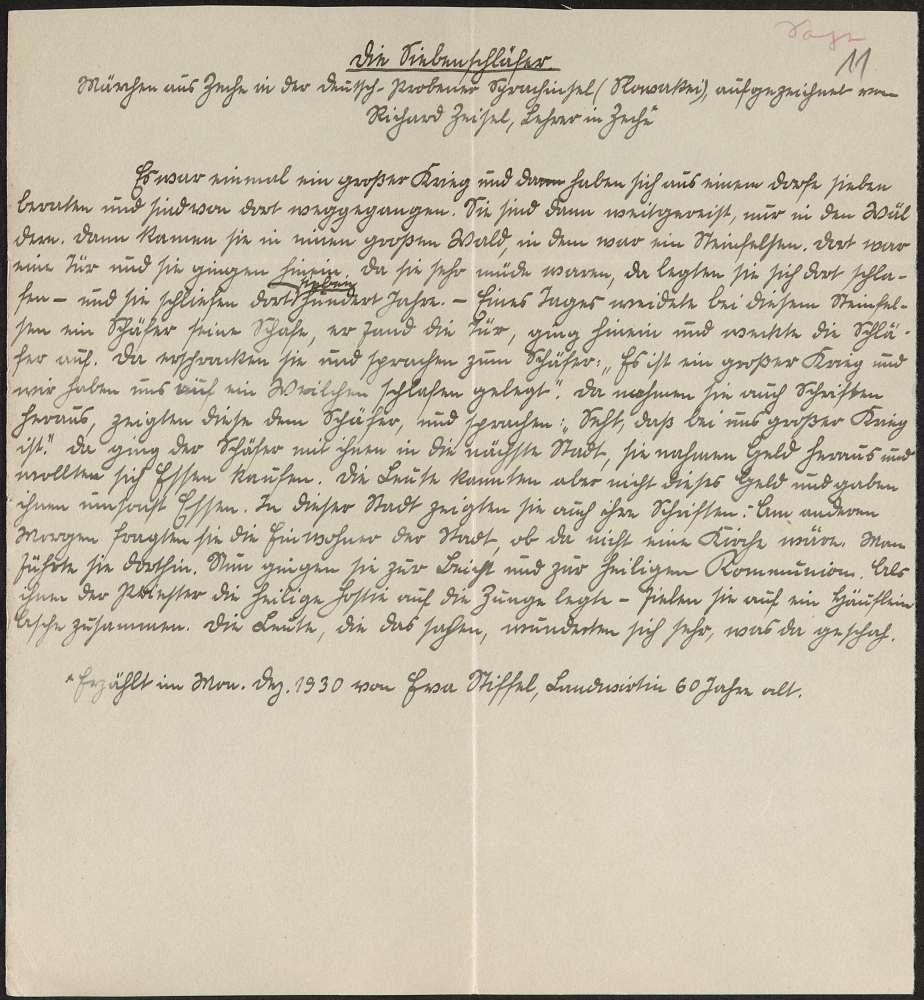 Sage
11
Die Siebenschläfer
Märchen aus Zeche in der Deutsch-Probener Sprachinsel (Slowakei), aufgezeichnet von
Richard Zeisel, Lehrer in Zeche*
Es war einmal ein großer Krieg und dann haben sich aus einem Dorfe sieben
beraten und sind von dort weggegangen. Sie sind dann weitgereist, nur in den Wäl
dern. Dann kamen sie in einen großen Wald, in dem war ein Steinfelsen. Dort war
eine Tür und sie gingen hinein. Da sie sehr müde waren, da legten sie sich dort schla-
sieben
fen – und sie schliefen dort hundert Jahre. – Eines Tages weidete bei diesem Steinfel-
sen ein Schäfer seine Schafe, er fand die Tür, ging hinein und weckte die Schlä-
fer auf. Da erschracken sie und sprachen zum Schäfer: „Es ist ein großer Krieg und
wir haben uns auf ein Weilchen schlafen gelegt". Da nahmen sie auch Schriften
heraus, zeigten diese dem Schäfer, und sprachen: „Seht, daß bei uns großer Krieg
ist." Da ging der Schäfer mit ihnen in die nächste Stadt, sie nahmen Geld heraus und
wollten sich Essen kaufen. Die Leute kannten aber nicht dieses Geld und gaben
ihnen umsonst Essen. In dieser Stadt zeigten sie auch ihre Schriften. Am anderen
Morgen fragten sie die Einwohner der Stadt, ob da nicht eine Kirche wäre. Man
führte sie dorthin. Nun gingen sie zur Beicht und zur heiligen Kommunion. Als
ihnen der Priester die heilige Hostie auf die Zunge legte – fielen sie auf ein Häuflein
Asche zusammen. Die Leute, die das sahen, wunderten sich sehr, was da geschah.
* Erzählt im Mon. Dez. 1930 von Eva Stiffel, Landwirtin 60 Jahre alt.